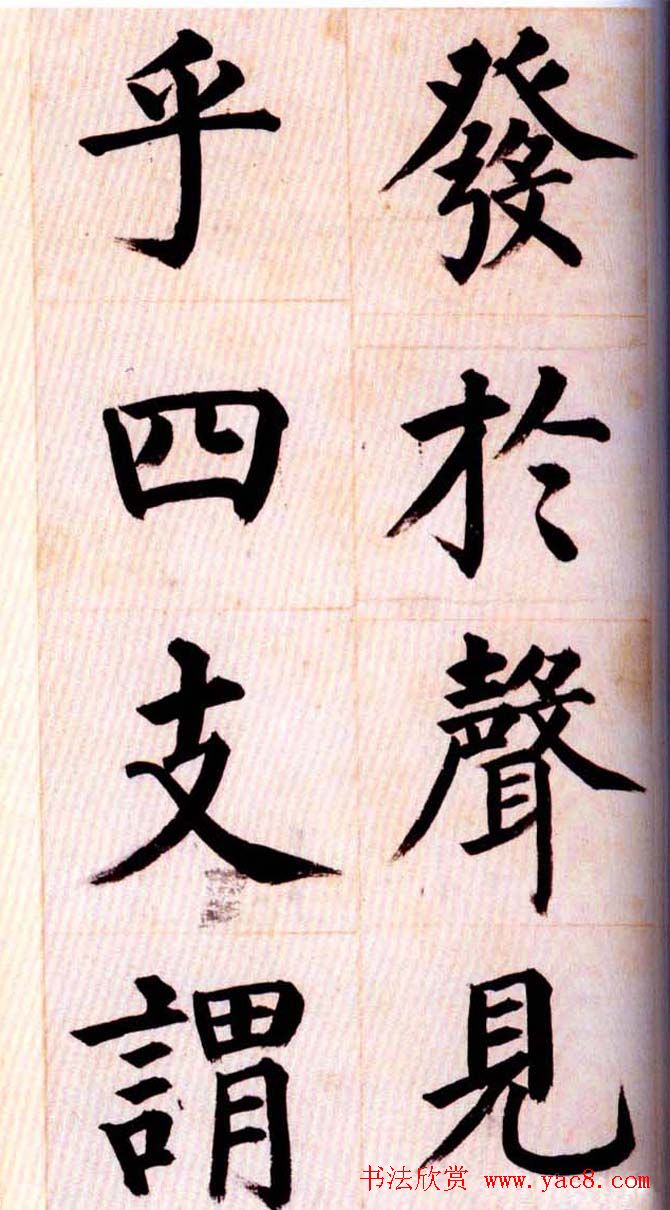 發於聲見
乎四支謂
书法欣赏 www.yac8.com